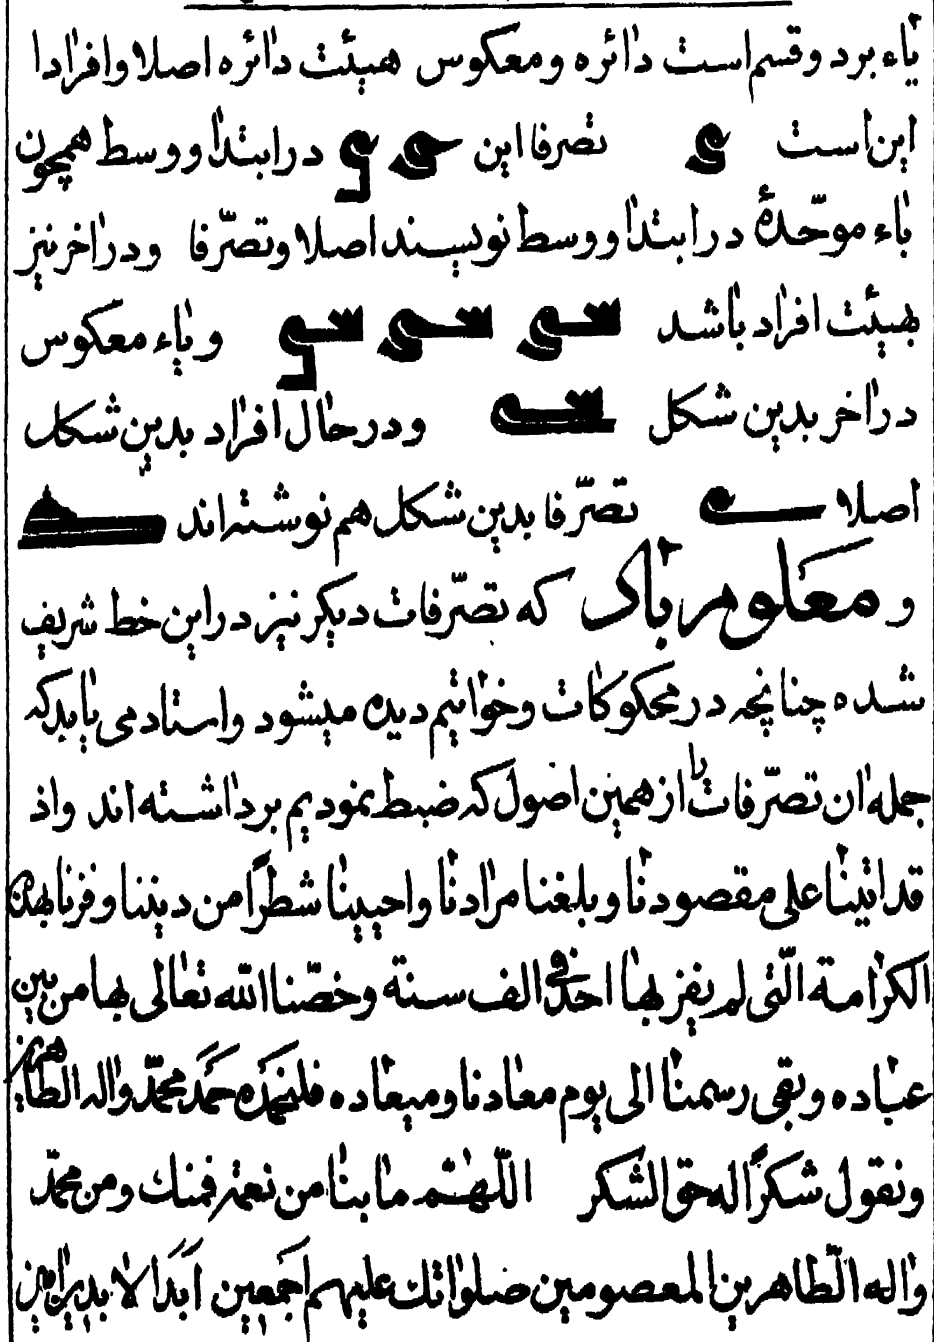 یاء بر دو قسم است دائره و معکوس هیئت دائره اصلا وافرادا
این است ی تصرفا این ی ی در ابتدا و وسط همچون
باء موحّدهٔ در ابتدا و وسط نویسند اصلا و تصرّفا و در اخر نیز
بهیئت افراد باشد سی سی سی و یاء معکوس
در اخر بدین شکل سے و در حال افراد بدین شکل
اصلا ے تصرّفا بدین شکل هم نوشته اند
و معلوم باد که تصرّفات دیکر نیز در این خط شریف
شده چنانچه در محکوکات و خواتیم دیده میشود واستاد می باید که
جمله ان تصرّفات را از همین اصول که ضبط نمودیم برداشته اند واذ
قد اتینا علی مقصودنا و بلغنا مرادنا واحیینا شطرًا من دیننا و فزنا بهذه
الکرامة الّتی لم یفز بها احد فی الف سنة و خصّنا اللّه تعالی بها من بین
عباده و بقی رسمنا الی یوم معادنا و میعاده فلنحمده حمد محمّد واله الطاهرین
و نقول شکرًا له حق الشکر اللّهمّ ما بنا من نعمة فمنك و من محمّد
واله الطّاهرین المعصومین صلواتك علیهم اجمعین ابدًا لابدین امین